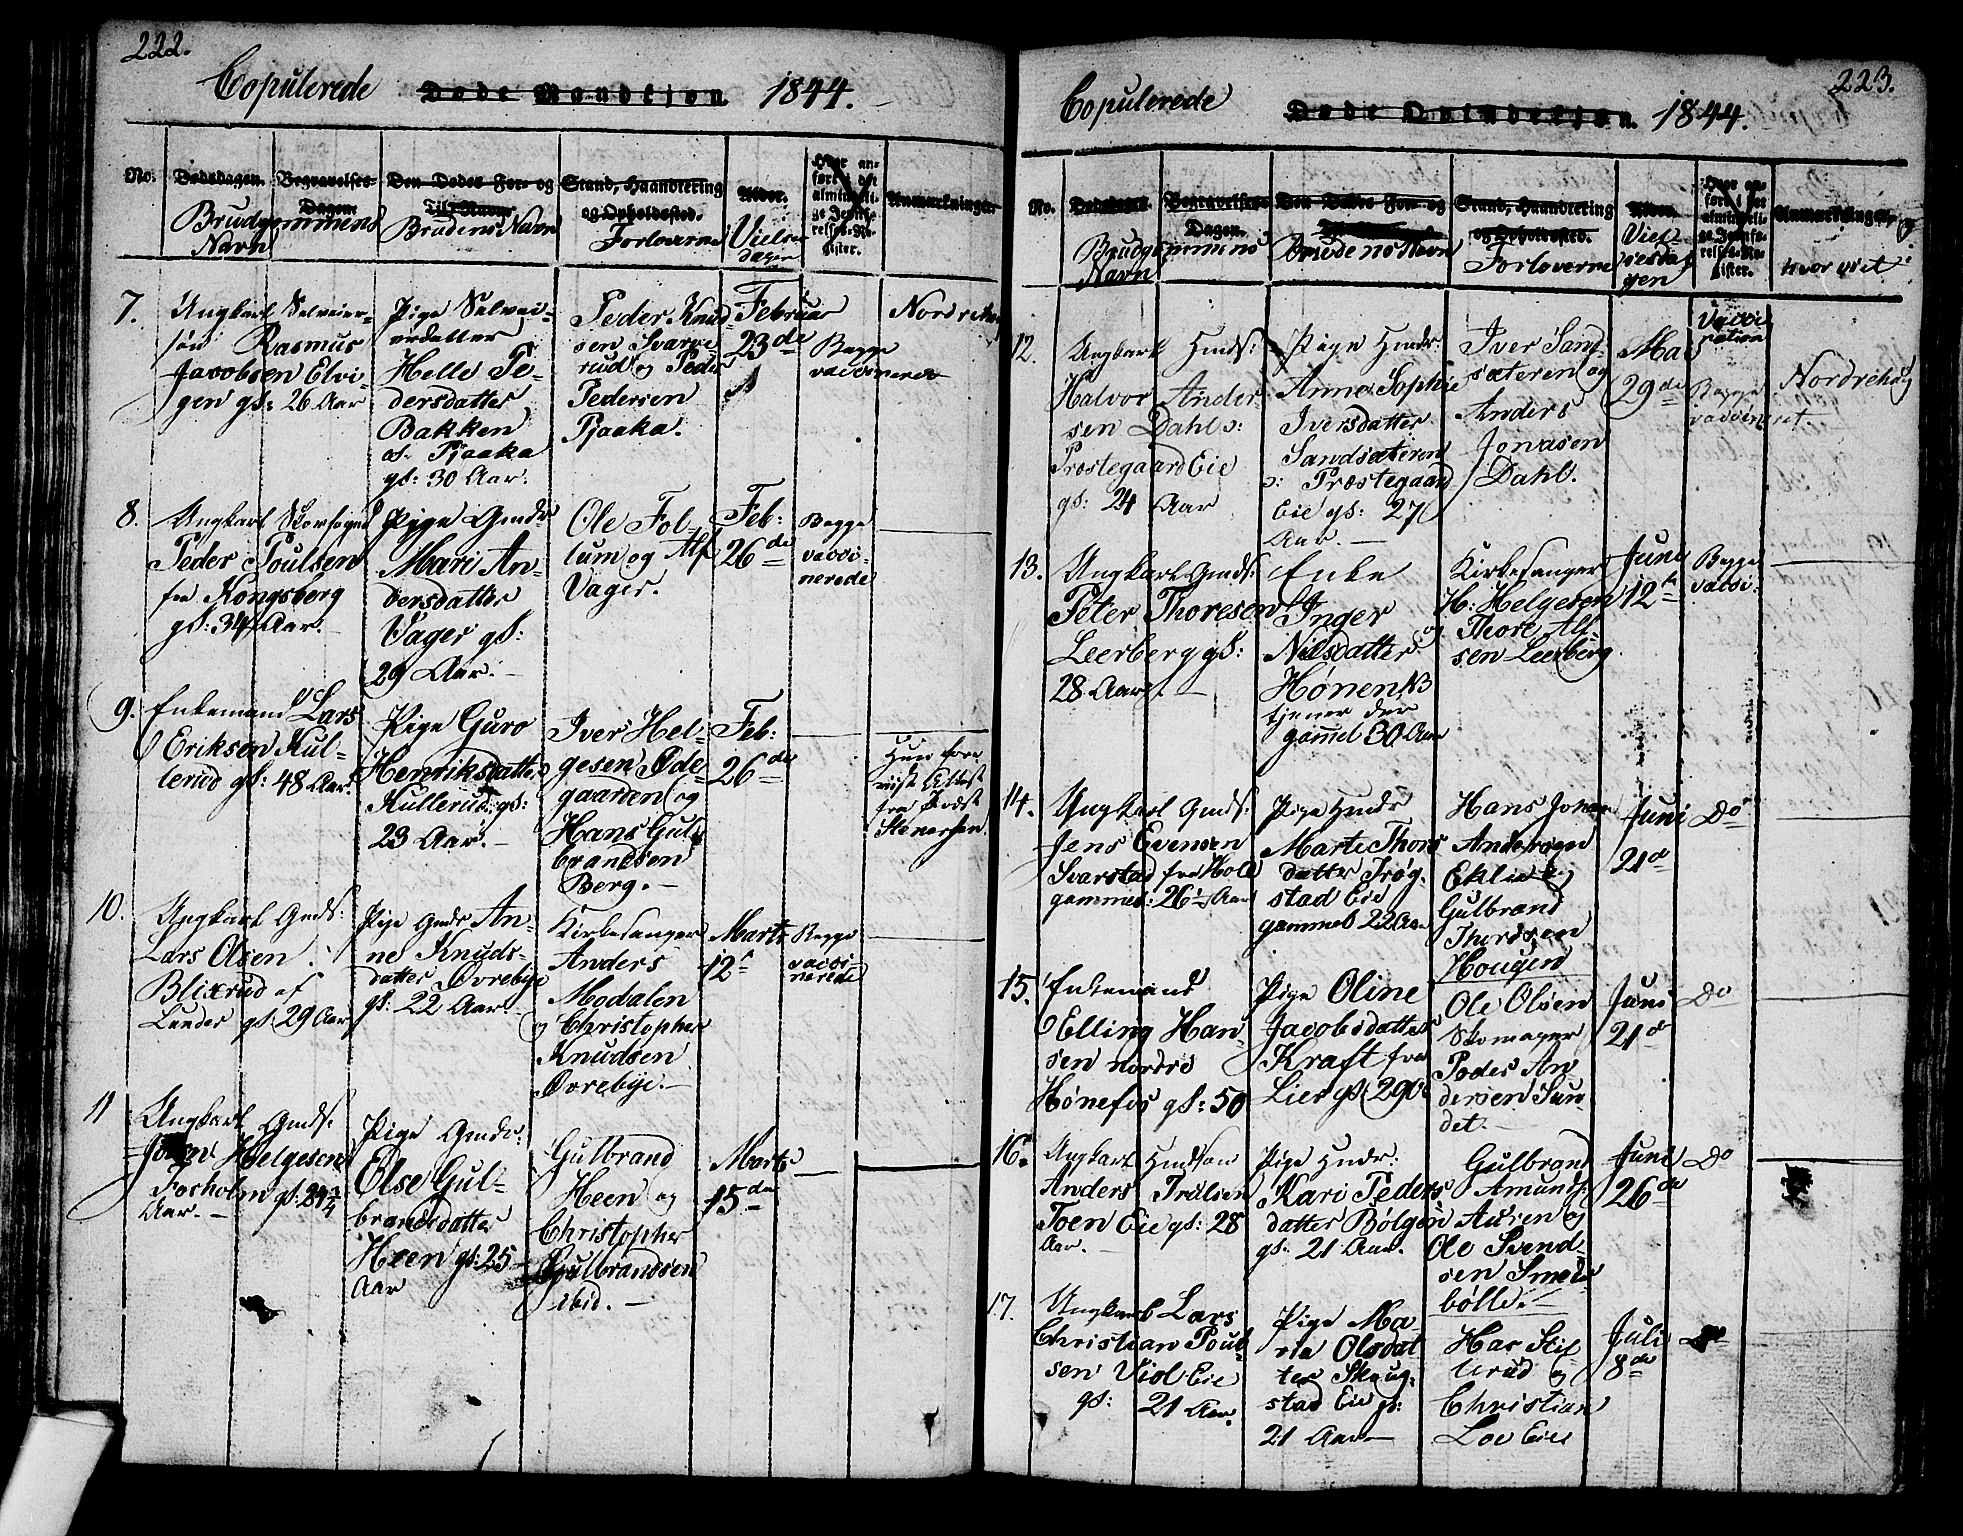 222.
Copulerede Døde Mandkjøn. 1844.
No. Dødsdagen. Begravelses-Dagen. Den Dødes For- og Til-Navn. Stand, Haandtering og Opholdssted. Alder. Hvor anført i det almindelige Jevnførelses-Register. Anmærkninger.
Brudgommens Navn
Brudens Navn
Forloverne
Vielsesdagen
7.
Ungkarl Selveier-
søn Rasmus
Jacobsen Elvi-
gen gl: 26 Aar
Pige Selvei-
erdatter
Helle Pe-
dersdatter
Bakken
Pjaaka
gl: 30 Aar.
Peder Knud-
sen Svarve
rud og Peder
Pedersen
Pjaaka.
Februar
23de
Begge
vaccinerede
Nordrehoug
8.
Ungkarl
Peder Poulsen
fra Kongsberg
gl: 34 Aar.
Pige Gmdr
Mari An-
dersdatter
Vager gl:
29 Aar.
Ole Fol-
lum og Alf
Vager.
Feb:
26de
Begge
vacci-
nerede
9.
Enkemand Lars
Eriksen Kul-
lerud gl: 48 Aar.
Pige Guro
Henriksdatter
Kullerud gl:
23 Aar.
Iver Hel-
gesen Øde-
gaarden og
Hans Gul-
brandsen
Berg.
Feb:
26de
Hun fore
viist Attest
fra Præst
Stenersen.
10.
Ungkarl Gmds:
Lars Olsen
Blixrud af
Lunder gl: 29 Aar
Pige Gmdr An-
ne Knuds-
datter Øvrebye
gl: 22 Aar.
Kirkesanger
Anders
Modalen
og Christopher
Knudsen
Øvrebye.
Marts
12te
Begge
vacci-
nerede
11
Ungkarl Gmds:
Johan Helgesen
Fosholm gl: 24 3/4
Aar.
Pige Gmdr:
Else Gul-
brandsdatter
Heen gl: 25
Aar
Gulbrand
Heen og
Christopher
Gulbrandsen
ibid.
Marts
15de
223.
Copulerede Døde Qvindekjøn. 1844.
No. Dødsdagen. Begravelses-Dagen. Den Dødes For- og Til-Navn. Stand, Haandtering og Opholdssted. Alder. Hvor anført i det almindelige Jevnførelses-Register. Anmærkninger.
Brudgommens Navn
Brudens Navn
Forloverne
Vielsesdagen
Vaccination
hvor viet
12.
Ungkarl Hmds:
Halvor Ander
sen Dahl
Præstegaard Eie
gl: 24 Aar
Pige Hmdr:
Anne Sophie
Iversdatter
Sandsæteren
Præstegaard
Eie gl: 27
Aar.
Iver Sand-
sæteren og
Anders
Jonasen
Dahl.
Mai
29de
Begge
vaccineret.
Nordrehoug
13.
Ungkarl Gmds:
Peter Thoresen
Leerberg gl:
28 Aar.
Enke
Inger
Nilsdatter
Hønen
tjener der
gamel 30 Aar
Kirkesanger
H: Helgesen
og Thore Alf-
sen Leerberg.
Juni
12te
Begge
vacci:
14.
Ungkarl Gmds:
Jens Evensen
Svarstad fra Hole
gammel: 26 1/2 Aar
Pige Hmdr
Marte Thors
datter Trøg-
stad Eie
gammel 22 Aar
Hans Johan
Andersen
Eklie og
Gulbrand
Thordsen
Hougen
Juni
21de
Do
15.
Enkemand
Elling Han-
sen nordre
Hønefos gl: 50
Pige Oline
Jacobsdatter
Kraft fra
Lier gl: 29
Ole Olsen
Skomager
Peder An
dersen Sun-
det.
Juni
21de
Do
16.
Ungkarl Hmdsøn
Anders Trulsen
Toen Eie gl: 28
Aar.
Pige Hmdr:
Kari Peders
datter Bølgen
gl: 21 Aar.
Gulbrand
Amund:
Asken og
Ole Svend-
sen Smeds
bølle.
Juni
26de
Do
17.
Ungkarl Lars
Christian Poul-
sen Viol Eie
gl: 21 Aar.
Pige Ma-
ria Olsdat
ter Skaug-
stad Eie gl:
21 Aar
Har Stif
lerud og
Christian
Loe Eie
Juli
8de
Do